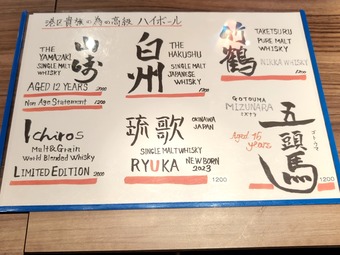 港区最強の為の高級 ハイボール
THE
YAMAZAKI
SINGLE MALT
WHISKY
山崎
AGED 12 YEARS
Non Age Statement 1200
白州
THE
HAKUSHU
SINGLE MALT
JAPANESE
WHISKY
竹鶴
TAKETSURU
PURE MALT
WHISKY
NIKKA WHISKY
Ichiro's
Malt & Grain
World Blended Whisky
LIMITED EDITION 2000
琉歌
OKINAWA
JAPAN
SINGLE MALT WHISKY
RYUKA NEW BORN
2023
1200
GOTOUMA
MIZUNARA
Aged 15
years
五頭馬
ゴトウマ
1200